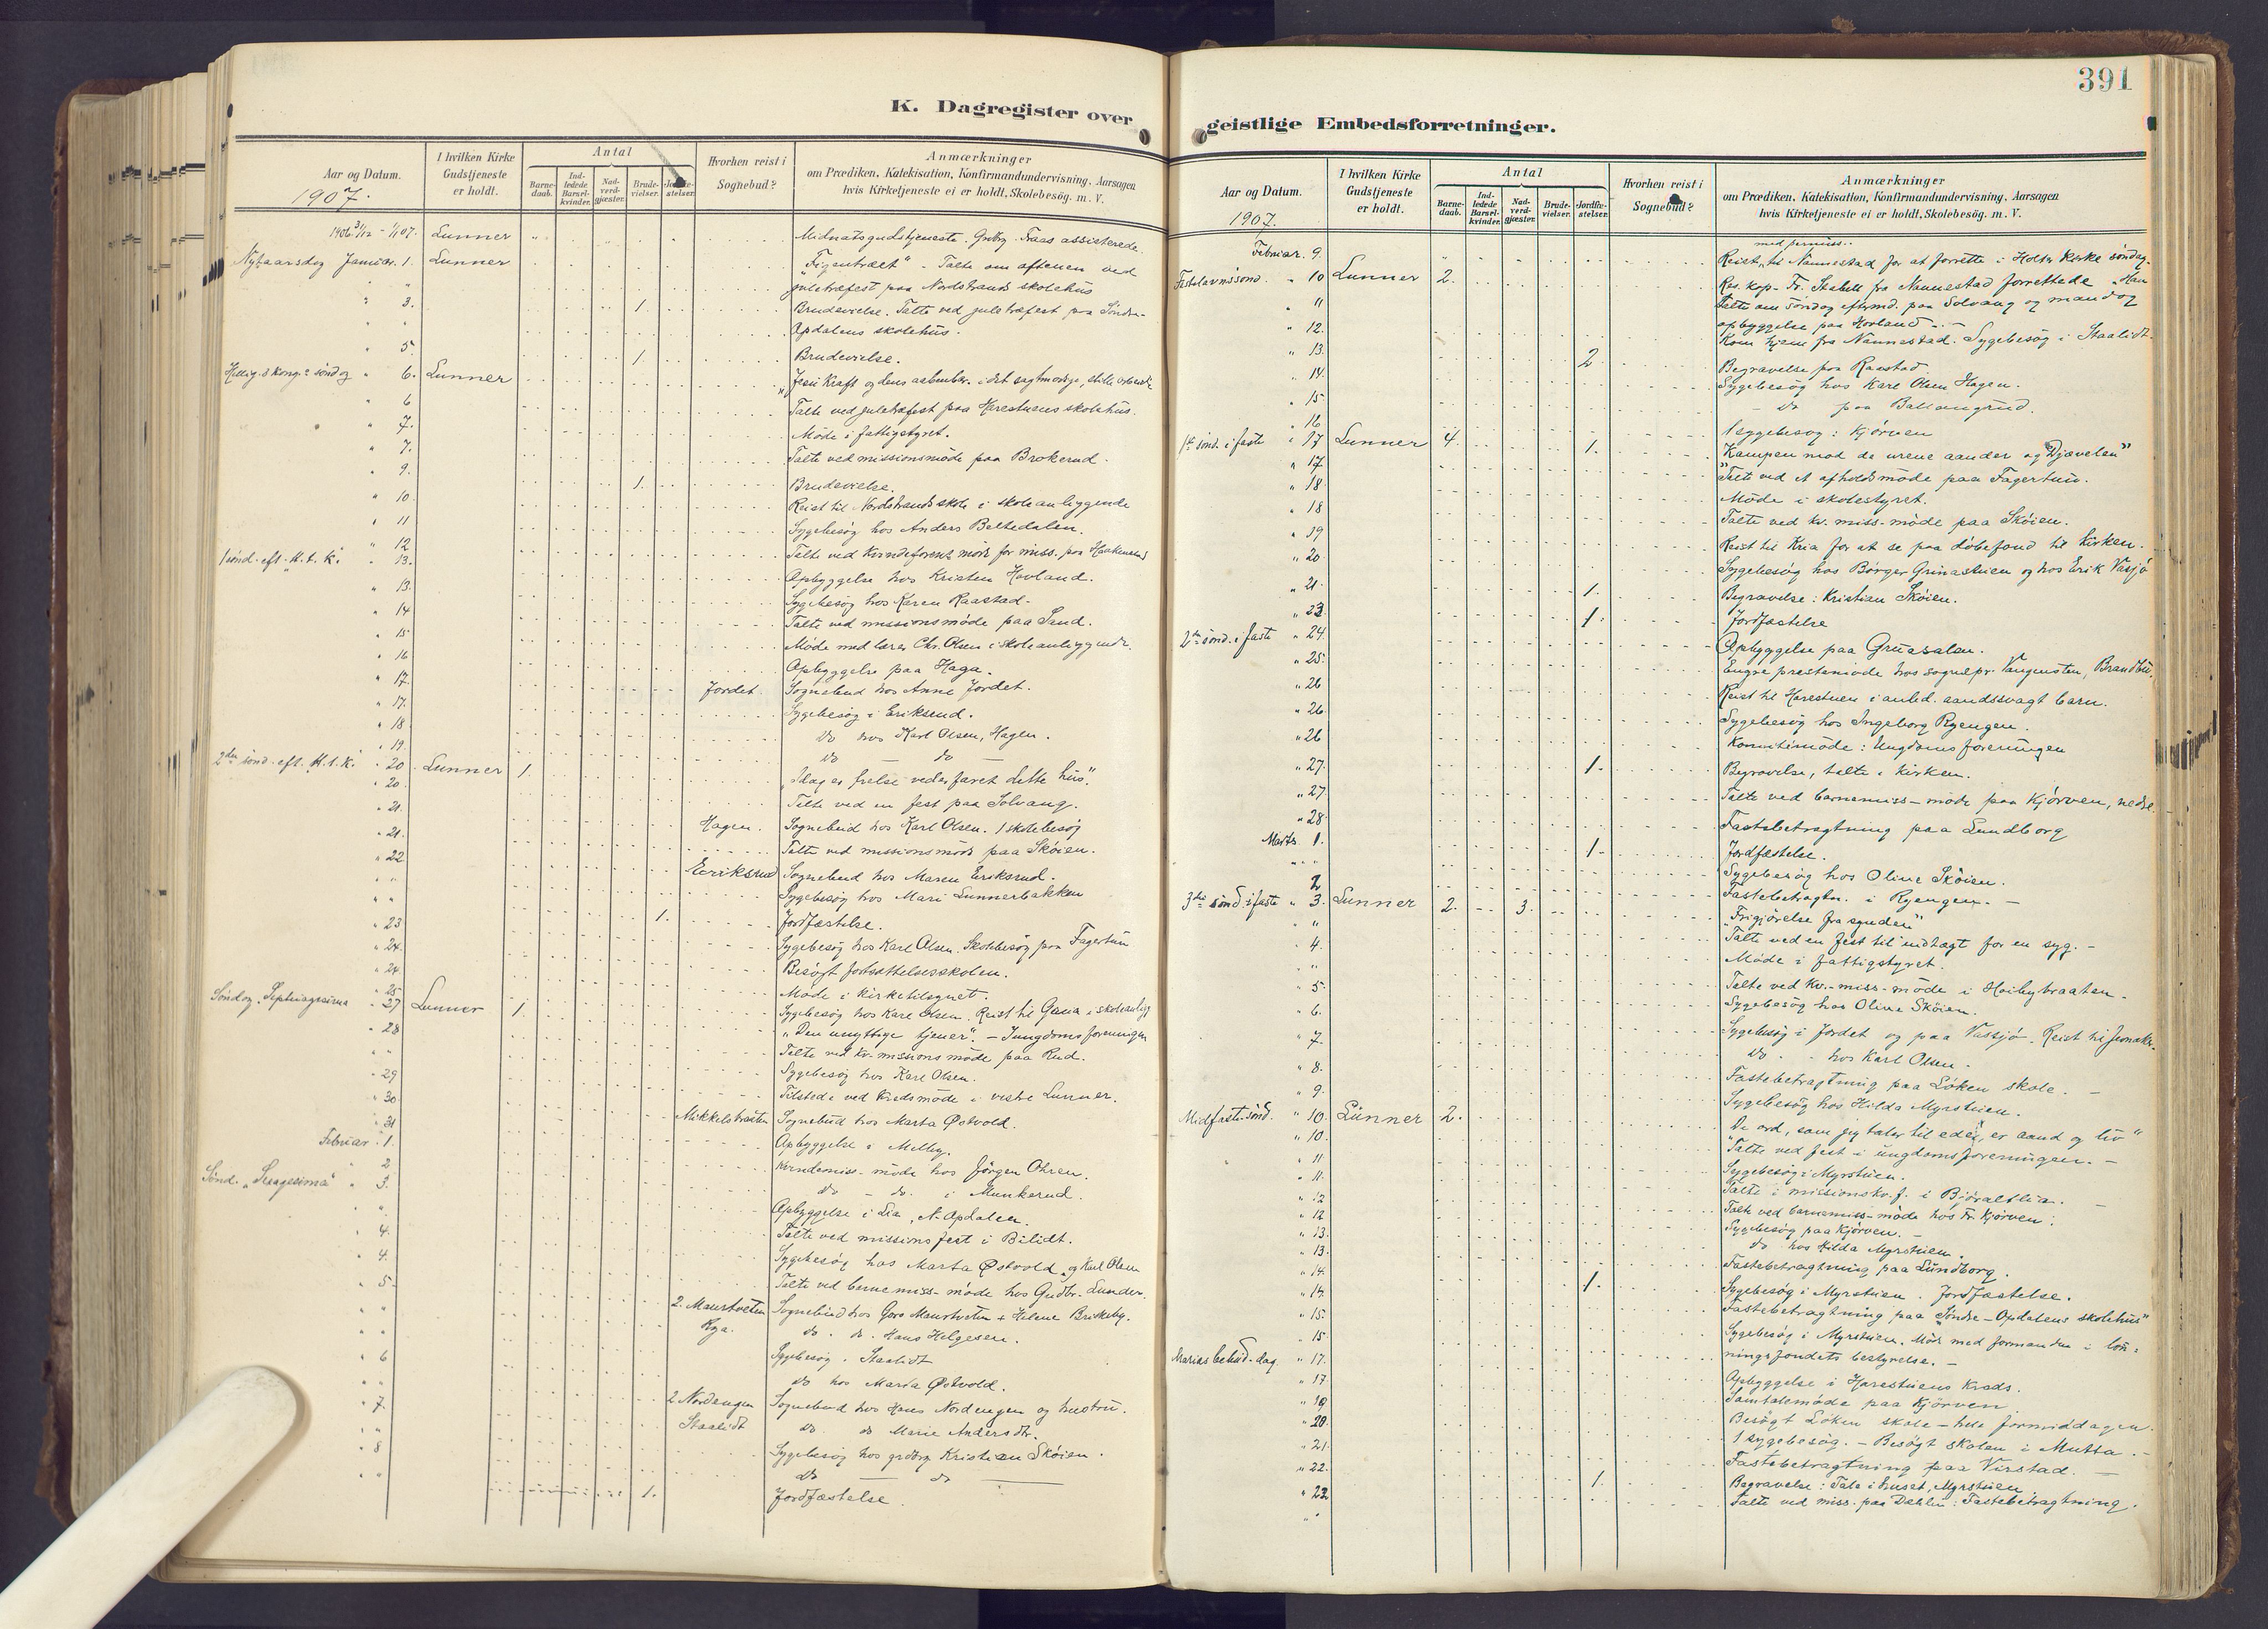 K. Dagregister over
Aar og Datum.
1907.
I hvilken Kirke Gudstjeneste er holdt.
Antal
Barne-daab.
Ind-ledede Barsel-kvinder.
Nad-verd-gjæster.
Brude-vielser.
Hvorhen reist i Sognebud?
Anmærkninger
om Prædiken, Katekisation, Konfirmandundervisning, Aarsagen
hvis Kirketjeneste ei er holdt, Skolebesög. m. V.
1906 31/12 - 1/1 07. Lunner Midnatsgudstjeneste. Traas assisterede.
Nytaarsdag Januar. 1. Lunner "Figentræet" - Talte om aftenen ved
juletræfest paa Nordstrands skolehus
3. 1. Brudevielse. Talte ved juletræfest paa Söndre-
Opdalens skolehus.
5. 1. Brudevielse.
Hellig. 3 kong.s söndag 6. Lunner
6 Talte ved juletræfest paa Harestuens skolehus.
7. Möde i fattigstyret.
7. Talte ved missionsmöde paa Brokerud.
9. 1. Brudevielse.
10. Reist til Nordstrands skole i skoleanliggende
11 Sygebesög hos Anders Beltedalen.
12 Talte ved Kvindeforenes möde for miss. paa Haakenstad
1 sönd. eft. H. t. K. 13. Opbyggelse hos Kristen Hovland.
13. Sygebesög hos Karen Raastad.
14 Talte ved missionsmöde paa Sand.
15 Möde med lærer Chr. Olsen i skoleanliggende.
16 Opbyggelse paa Haga.
17. Jordet. Sognebud hos Anne Jordet.
17. Sygebesög i Eriksrud.
18 do hos Karl Olsen, Hagen.
19. do — do —
2den sönd. eft. H. t. K. 20 Lunner 1. "Idag er frelse vederfaret dette hus".
20. Talte ved en fest paa Solvang.
21. Hagen. Sognebud hos Karl Olsen. 1 skolebesög
21. Talte ved missionsmöde paa Sköien.
22 Eeriksrud Sognebud hos Maren Eeriksrud.
" Sygebesög hos Mari Lunnerbakken
" 1. Jordfæstelse.
23 Sygebesög hos Karl Olsen. Skolebesög paa Fagertun
24. Besögt fortsættelsesskolen.
24. Möde i kirketilsynet.
25 Sygebesög hos Karl Olsen. Reist til Grua i skoleanligg
Söndag Septuagesima 27 Lunner 1. "Den unyttige tjener". - I ungdomsforeningen
28 Talte ved kv. missionsmöde paa Rud.
" Sygebesög hos Karl Olsen.
29 Tilstede ved Kredsmöde i vestre Lunner.
30 Mikkelsbraaten Sognebud hos Marta Østvold.
31 Opbyggelse i Melby.
Februar 1. Kvindemiss.-möde hos Jörgen Ohren.
2 do - do. i Munkerud.
Sönd. "Sexagesima" 3. Opbyggelse i Lia, N-Opdalen.
" Talte ved missionsfest i Bilidt.
4. Sygebesög hos Marta Østvold og Karl Olsen
4. Talte ved barnemiss-möde hos Gudbr. Lunder.
5. 2. Maurtveten Sognebud hos Goro Maurtveten + Helene Briskeby.
" Rya. do. do. Hans Helgesen.
" Sygebesög. Staalidt
6 do hos Marta Østvold.
" 2 Nordengen Sognebud hos Hans Nordengen og hustru.
7. Staalidt do do Marie Andersdtr.
" Sygebesög hos grdbrg Kristian Sköien.
8 do — do —
" 1. Jordfæstelse.
391
geistlige Embedsforretninger.
Aar og Datum.
1907.
I hvilken Kirke Gudstjeneste er holdt.
Antal
Barne-daab.
Ind-ledede Barsel-kvinder.
Nad-verd-gjæster.
Brude-vielser.
Jordfæ-stelser.
Hvorhen reist i Sognebud?
Anmærkninger
om Prædiken, Katekisation, Konfirmandundervisning, Aarsagen
hvis Kirketjeneste ei er holdt, Skolebesög. m. V.
med permiss..
Februar. 9. Reist til Nannestad for at forrette i Holter kirke söndag.
Fastelavnssönd. 10 Lunner 2. Res. kap. Fr. Stabell fra Nannestad forrettede. Han
11 talte om söndag eftermd. paa Solvang og mandag
opbyggelse paa Hovland. -
12. Kom hjem fra Nannestad. Sygebesög i Staalidt.
13. 2 Begravelse paa Raastad.
14. Sygebesög hos Karl Olsen Hagen.
15 - do paa Ballangrud.
16 1 sygebesög: Kjörven
1ste sönd. i faste 17 Lunner 4. 1. "Kampen mod de urene aander og Djævelen"
17 Talte ved et afholdsmöde paa Fagertun.
18 Möde i skolestyret.
18 Talte ved kv. miss-möde paa Sköien.
19 Reist til Kria for at se paa döbefond til kirken.
20 Sygebesög hos Börger Grinastuen og hos Erik Vasjö
21 1. Begravelse: Kristian Sköien.
23. 1. Jordfæstelse
2den sönd. i faste 24. Opbyggelse paa Gruasalen.
25. Engre prestemöde hos sognepr. Vangensten, Brandbu.
26 Reist til Harestuen i anled. aandssvagt barn.
26 Sygebesög hos Ingeborg Ryengen.
26 Komitemöde: Ungdomsforeningen
27. 1. Begravelse, talte i kirken.
27. Talte ved barnemiss-möde paa Kjörven, nedre.
28 Fastebetragtning paa Lundborg
Marts 1. 1. Jordfæstelse.
" Sygebesög hos Oline Sköien.
2 Fastebetragtn. i Ryengen. -
3die sönd. i faste 3. Lunner 2. 3. "Frigjörelse fra synden"
" Talte ved en fest til indtægt for en syg. -
4. Möde i fattigstyret.
" Talte ved kv.-miss-möde i Hoibybraaten.
5 Sygebesög hos Oline Sköien.
6. Sygebesög i Jordet og paa Vassjö. Reist til Jevnaker.
7 do. hos Karl Olsen.
8. Fastebetragtning paa Löken skole. -
9. Sygebesög hos Hilda Myrstuen.
Midfastesönd. 10 Lunner 2. "De ord, som jeg taler til eder, er aand og liv"
10. Talte ved fest i ungdomsforeningen. -
11 Sygebesög i Myrstuen.
11. Talte i missionskv.f. i Björaltlia.
12 Talte ved barnemiss-möde hos Fr. Kjörven.
12 Sygebesög paa Kjörven. -
13. do hos Hilda Myrstuen.
13. Fastebetragtning paa Lundborg.
14. 1. Sygebesög i Myrstuen. Jordfæstelse.
14. Fastebetragtning paa "Söndre-Opdalens skolehus"
15. Sygebesög i Myrstuen. Möde med formanden i lön-
ningsfondets bestyrelse. -
15 Opbyggelse i Harestuens Kreds.
Marias bebud.-dag 17. Samtalemöde paa Kjörven
17.
19 Besögt Löken skole - hele formiddagen.
20. 1 sygebesög. - Besögt skolen i Mutta. -
21. Fastebetragtning paa Virstad. -
22. 1. Begravelse: Tale i huset, Myrstuen
22 Talte ved miss. paa Dæhlen: Fastebetragtning.